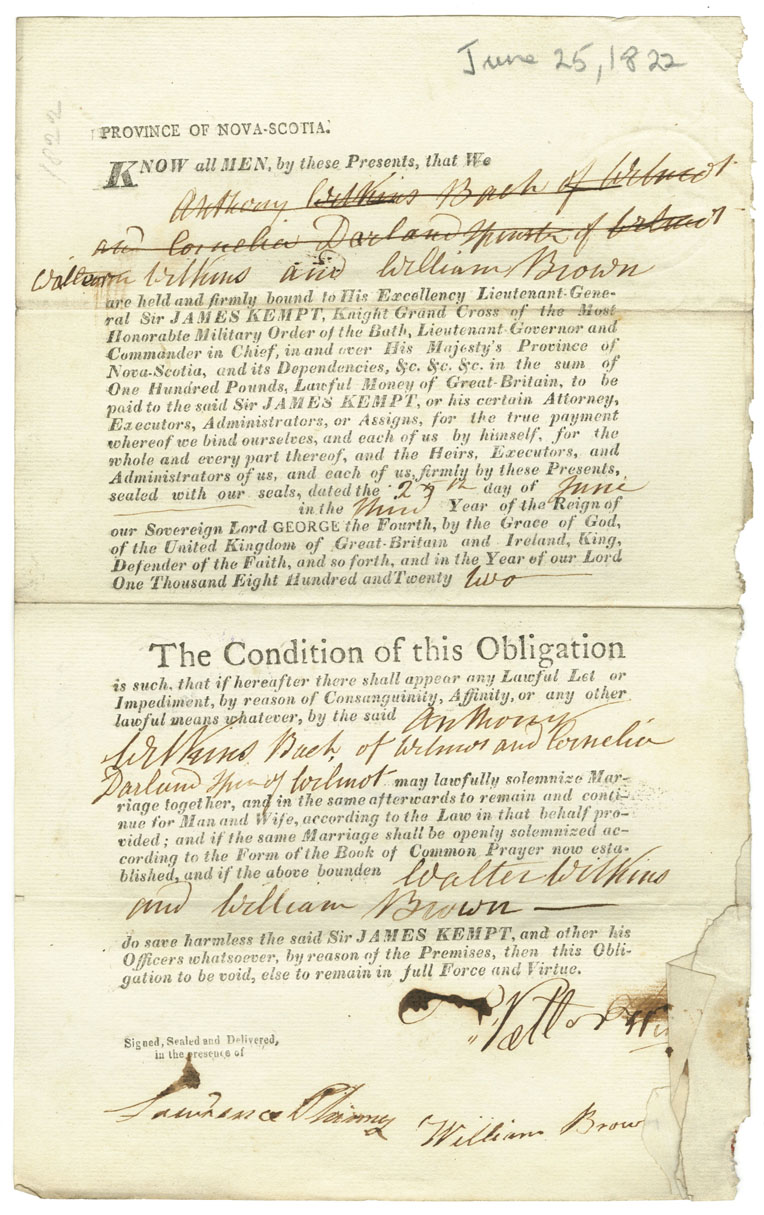 June 25, 1822
1822
PROVINCE OF NOVA-SCOTIA.
KNOW all MEN, by these Presents, that We
Anthony Wilkins Bach of Wilmot
and Cornelia Darland Spinster of Wilmot
Wilkins and William Brown
are held and firmly bound to His Excellency Lieutenant-Gene-
ral Sir JAMES KEMPT, Knight Grand Cross of the Most
Honorable Military Order of the Bath, Lieutenant-Governor and
Commander in Chief, in and over His Majesty's Province of
Nova-Scotia, and its Dependencies, &c. &c. &c. in the sum of
One Hundred Pounds, Lawful Money of Great-Britain, to be
paid to the said Sir JAMES KEMPT, or his certain Attorney,
Executors, Administrators, or Assigns, for the true payment
whereof we bind ourselves, and each of us by himself, for the
whole and every part thereof, and the Heirs, Executors, and
Administrators of us, and each of us, firmly by these Presents,
sealed with our seals, dated the 25th day of June
in the Third Year of the Reign of
our Sovereign Lord GEORGE the Fourth, by the Grace of God,
of the United Kingdom of Great-Britain and Ireland, King,
Defender of the Faith, and so forth, and in the Year of our Lord
One Thousand Eight Hundred and Twenty two
The Condition of this Obligation
is such, that if hereafter there shall appear any Lawful Let or
Impediment, by reason of Consanguinity, Affinity, or any other
lawful means whatever, by the said Anthony
Wilkins Bach. of Wilmot and Cornelia
Darland Spin of Wilmot may lawfully solemnize Mar-
riage together, and in the same afterwards to remain and conti-
nue for Man and Wife, according to the Law in that behalf pro-
vided; and if the same Marriage shall be openly solemnized ac-
cording to the Form of the Book of Common Prayer now esta-
blished, and if the above bounden Walter Wilkins
and William Brown
do save harmless the said Sir JAMES KEMPT, and other his
Officers whatsoever, by reason of the Premises, then this Obli-
gation to be void, else to remain in full Force and Virtue.
Signed, Sealed and Delivered,
in the presence of
Lawrence Phinney
William Brow